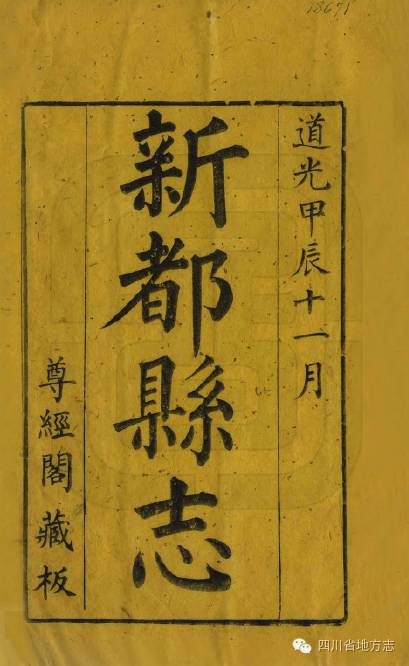 18671
道光甲辰十一月
新都縣志
尊經閣藏板
四川省地方志